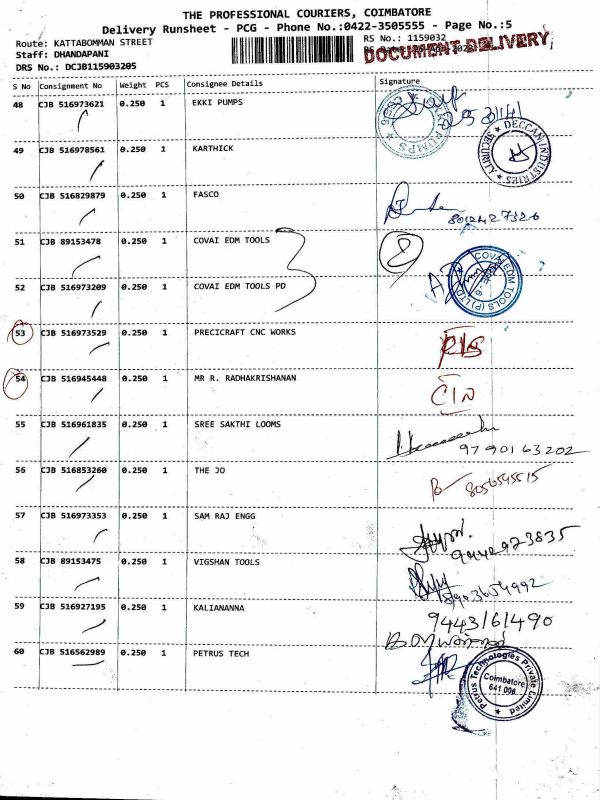 THE PROFESSIONAL COURIERS, COIMBATORE
Delivery Runsheet - PCG - Phone No.:0422-3505555 - Page No.:5
Route: KATTABOMMAN STREET
RS No.: 1159032
Staff: DHANDAPANI
DOCUMENT DELIVERY
DRS No.: DCJB115903205
S No Consignment No Weight PCS Consignee Details Signature
48 CJB 516973621 0.250 1 EKKI PUMPS
49 CJB 516978561 0.250 1 KARTHICK
DECCAN INDUSTRIES
SECURITY
50 CJB 516829879 0.250 1 FASCO
51 CJB 89153478 0.250 1 COVAI EDM TOOLS
52 CJB 516973209 0.250 1 COVAI EDM TOOLS PD
COVAI EDM TOOLS (P) LTD
53 CJB 516973529 0.250 1 PRECICRAFT CNC WORKS
54 CJB 516945448 0.250 1 MR R. RADHAKRISHANAN
55 CJB 516961835 0.250 1 SREE SAKTHI LOOMS
9790163202
56 CJB 516853260 0.250 1 THE JO
8056545515
57 CJB 516973353 0.250 1 SAM RAJ ENGG
9442973835
58 CJB 89153475 0.250 1 VIGSHAN TOOLS
59 CJB 516927195 0.250 1 KALIANANNA
9443161490
60 CJB 516562989 1 PETRUS TECH
Petrus Technologies Private Limited
Coimbatore
641 006